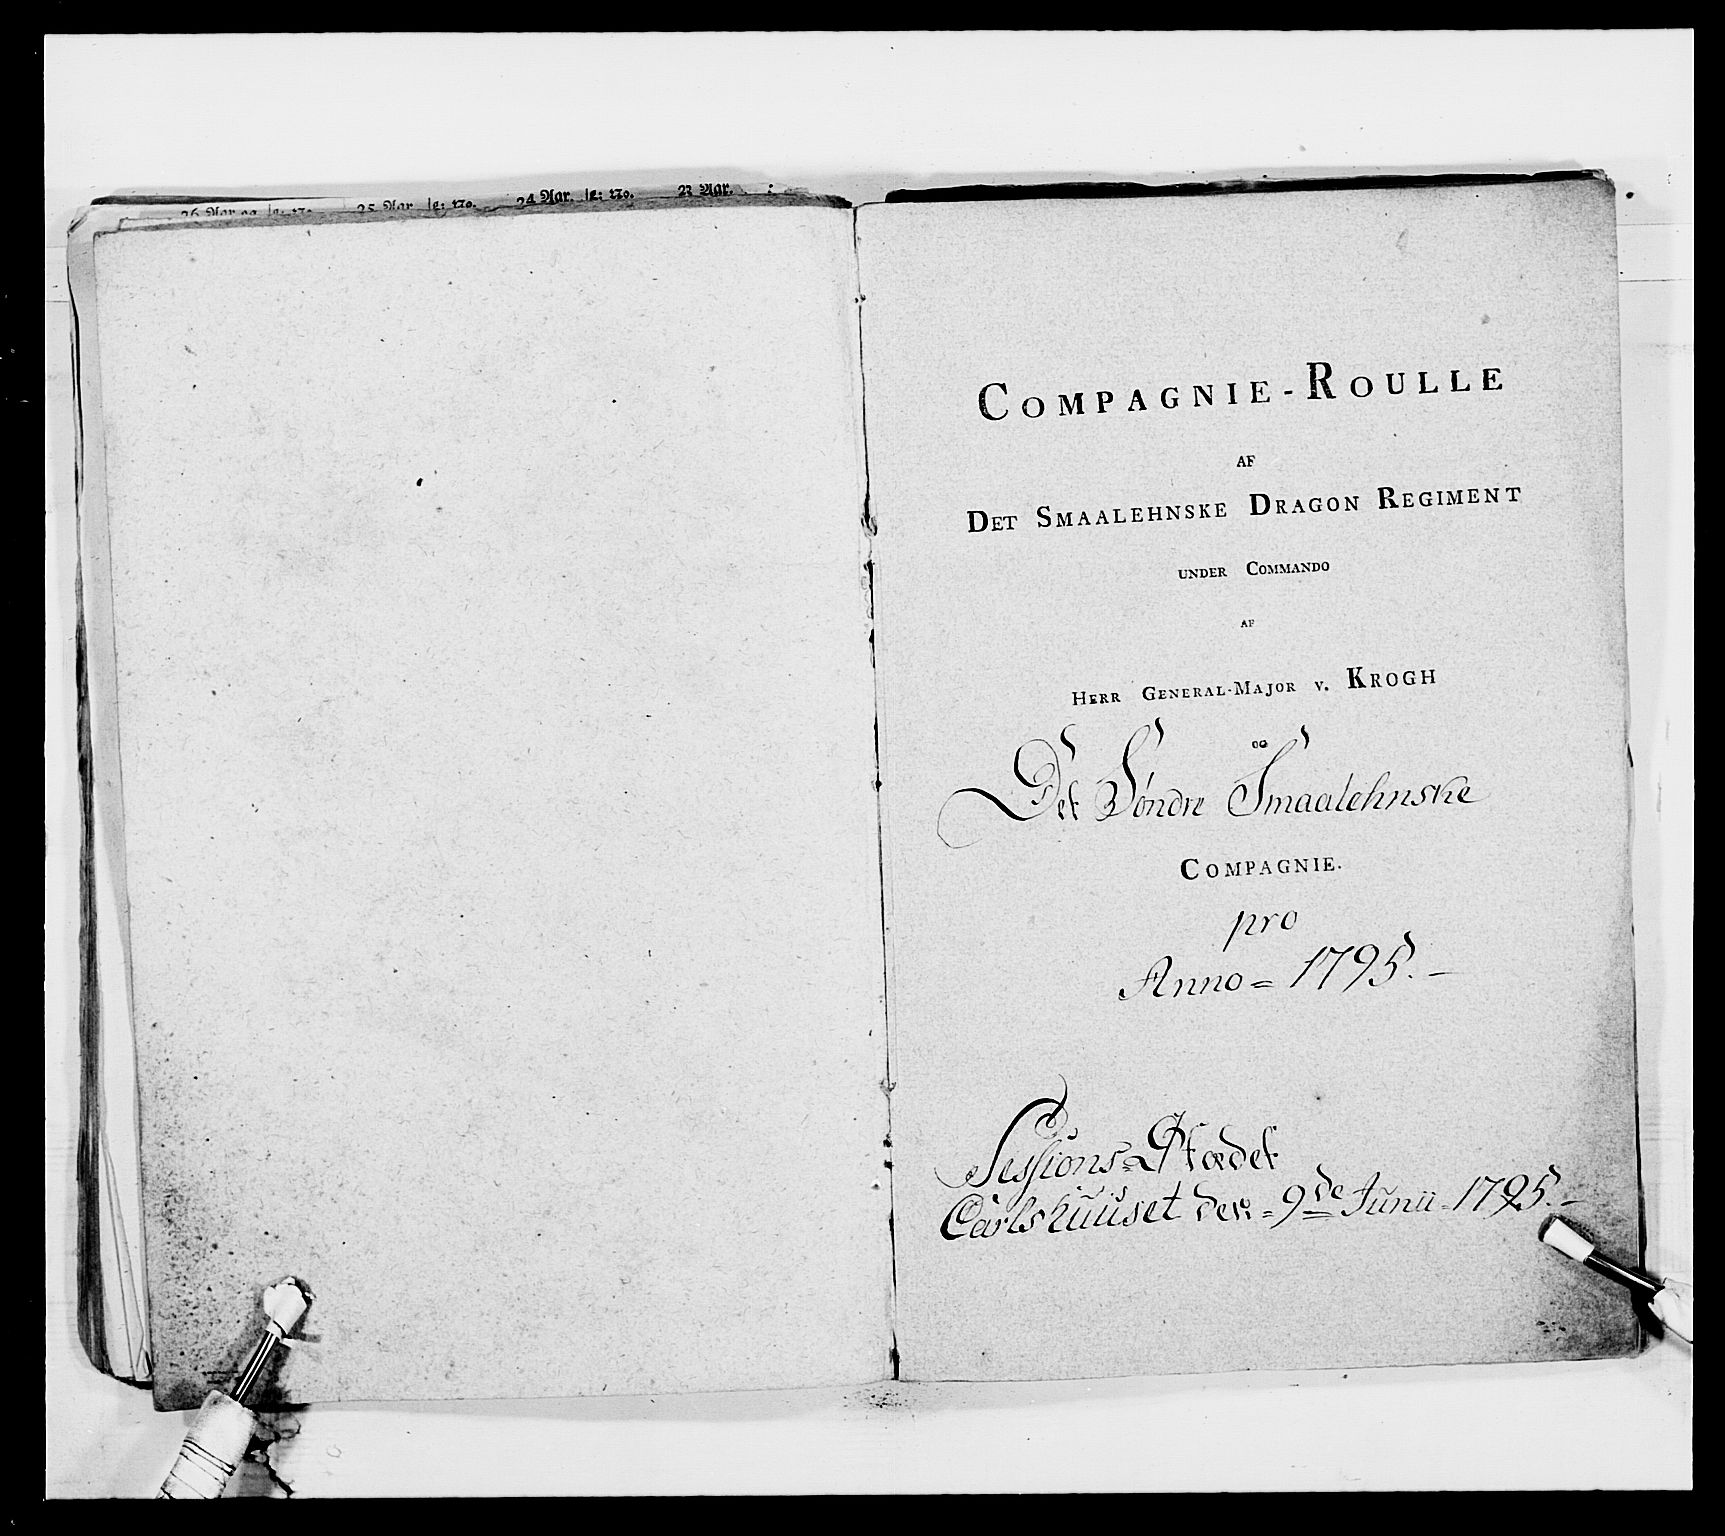 26 Aar og 25 Aar. 24 Aar. No. 23 Aar.
COMPAGNIE-ROULLE
AF
DET SMAALEHNSKE DRAGON REGIMENT
UNDER COMMANDO
AF
HERR GENERAL-MAJOR v. KROGH
OG
Det Søndre Smaalehnske
COMPAGNIE.
pro
Anno = 1795. –
Sessions-Stædet
Carlshuuset den = 9de Junii - 1795. –